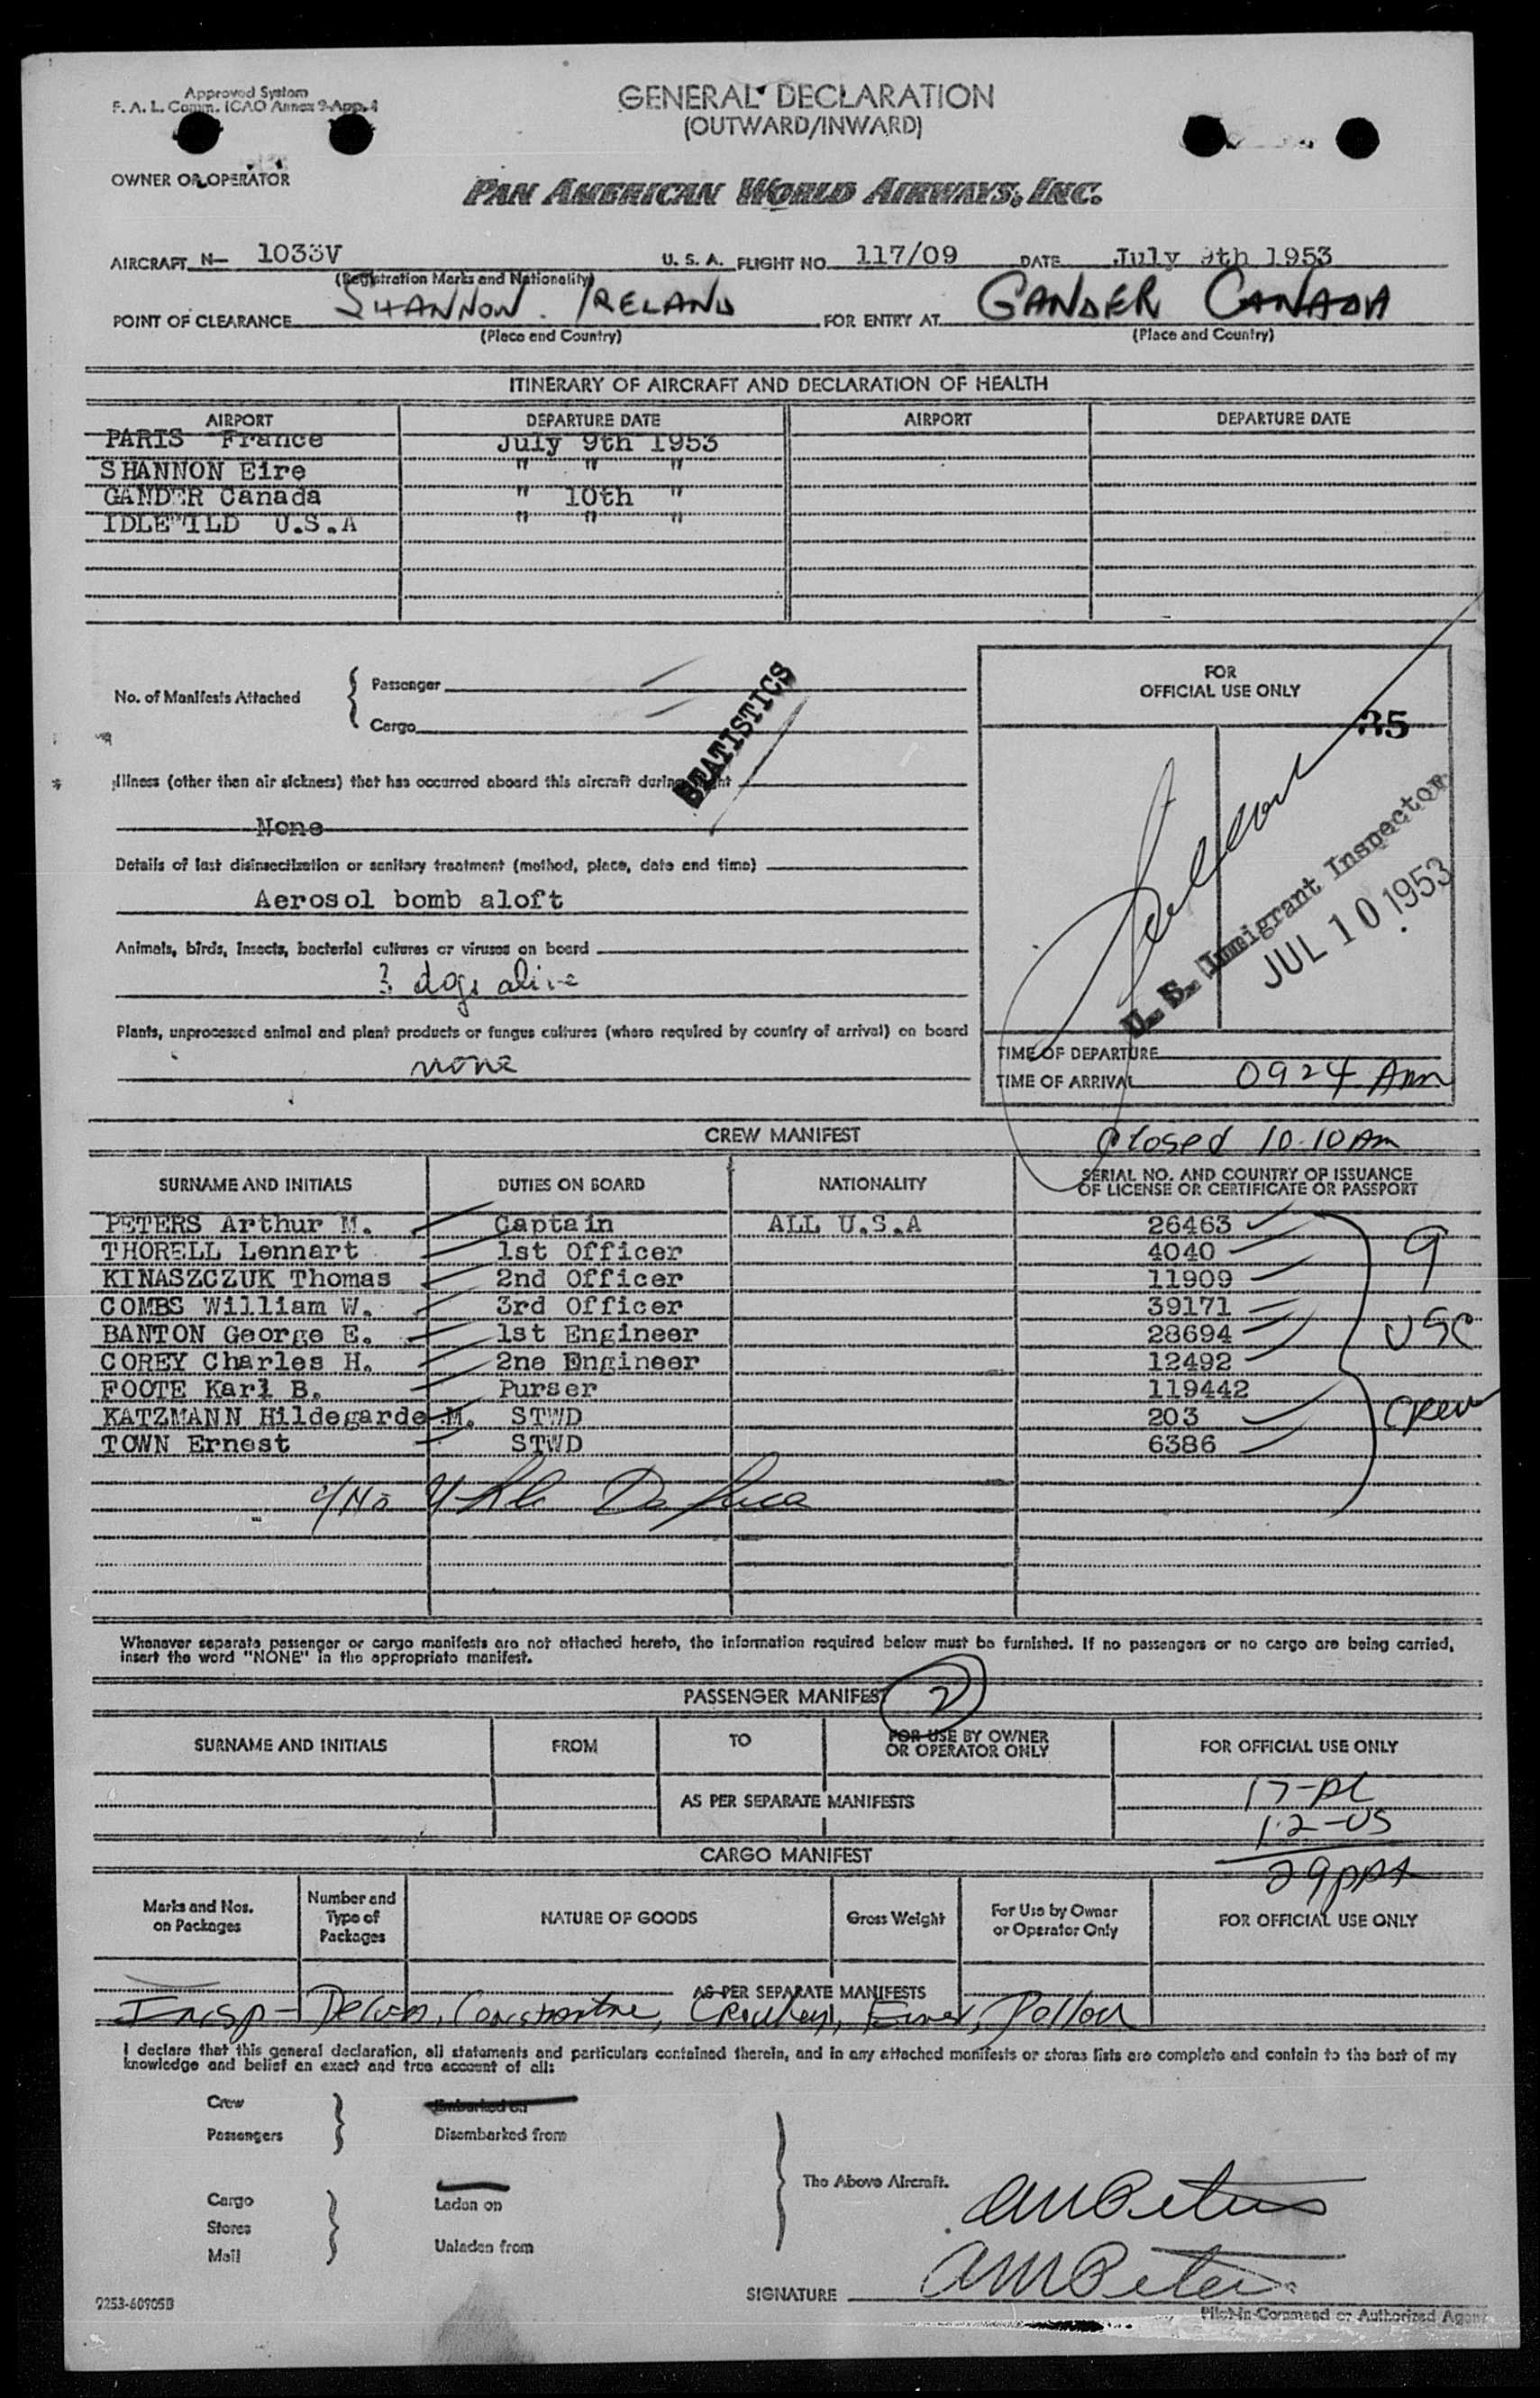 Approved System
F. A. L. Comm. ICAO Annex 9-App. 4
GENERAL DECLARATION
(OUTWARD/INWARD)
OWNER OR OPERATOR
PAN AMERICAN WORLD AIRWAYS, INC.
AIRCRAFT N- 1033V U. S. A. FLIGHT NO 117/09 DATE July 9th 1953
(Registration Marks and Nationality)
POINT OF CLEARANCE SHANNON. IRELAND FOR ENTRY AT GANDER CANADA
(Place and Country) (Place and Country)
ITINERARY OF AIRCRAFT AND DECLARATION OF HEALTH
AIRPORT DEPARTURE DATE AIRPORT DEPARTURE DATE
PARIS France July 9th 1953
SHANNON Eire " " "
GANDER Canada " 10th "
IDLEWILD U.S.A " " "
No. of Manifests Attached
Passenger
Cargo
STATISTICS
FOR
OFFICIAL USE ONLY
35
Illness (other than air sickness) that has occurred aboard this aircraft during
None
Details of last disinsectization or sanitary treatment (method, place, date and time)
Aerosol bomb aloft
Animals, birds, insects, bacterial cultures or viruses on board
dogs alive
Plants, unprocessed animal and plant products or fungus cultures (where required by country of arrival) on board
none
U. S. Immigrant Inspector
JUL 10 1953
TIME OF DEPARTURE
TIME OF ARRIVAL 0924 Am
CREW MANIFEST
Closed 10:10 Am
SURNAME AND INITIALS DUTIES ON BOARD NATIONALITY SERIAL NO. AND COUNTRY OF ISSUANCE
OF LICENSE OR CERTIFICATE OR PASSPORT
PETERS Arthur M. Captain ALL U.S.A 26463
THORELL Lennart 1st Officer 4040
KINASZCZUK Thomas 2nd Officer 11909
COMBS William W. 3rd Officer 39171
BANTON George E. 1st Engineer 28694
COREY Charles H. 2ne Engineer 12492
FOOTE Karl B. Purser 119442
KATZMANN Hildegarde M. STWD 203
TOWN Ernest STWD 6386
9
USC
Crew
Whenever separate passenger or cargo manifests are not attached hereto, the information required below must be furnished. If no passengers or no cargo are being carried,
insert the word "NONE" in the appropriate manifest.
PASSENGER MANIFEST 2
SURNAME AND INITIALS FROM TO FOR USE BY OWNER
OR OPERATOR ONLY FOR OFFICIAL USE ONLY
AS PER SEPARATE MANIFESTS
12-US
CARGO MANIFEST
Marks and Nos.
on Packages
Number and
Type of
Packages
NATURE OF GOODS
Gross Weight
For Use by Owner
or Operator Only
FOR OFFICIAL USE ONLY
AS PER SEPARATE MANIFESTS
Insp-
I declare that this general declaration, all statements and particulars contained therein, and in any attached manifests or stores lists are complete and contain to the best of my
knowledge and belief an exact and true account of all:
Crew
Passengers
Embarked on
Disembarked from
Cargo
Stores
Mail
Laden on
Unladen from
The Above Aircraft.
AM Peters
SIGNATURE AM Peters
Pilot-in-Command or Authorized Agent
9253-60905B